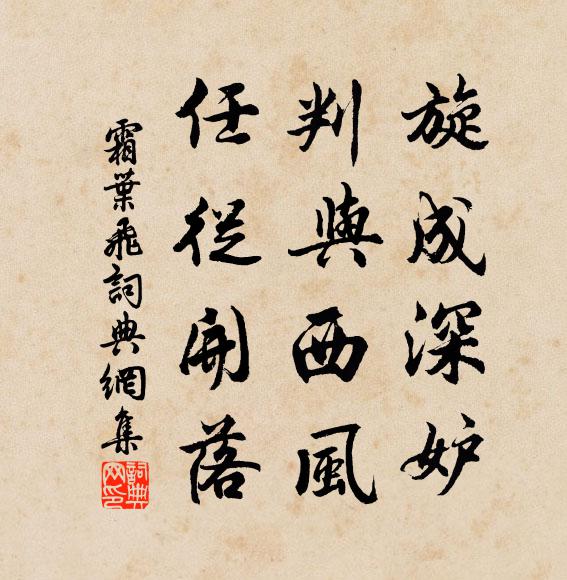 旋成深妒
判與西風
任從開落
霜葉飛詞典網集
詞典网印